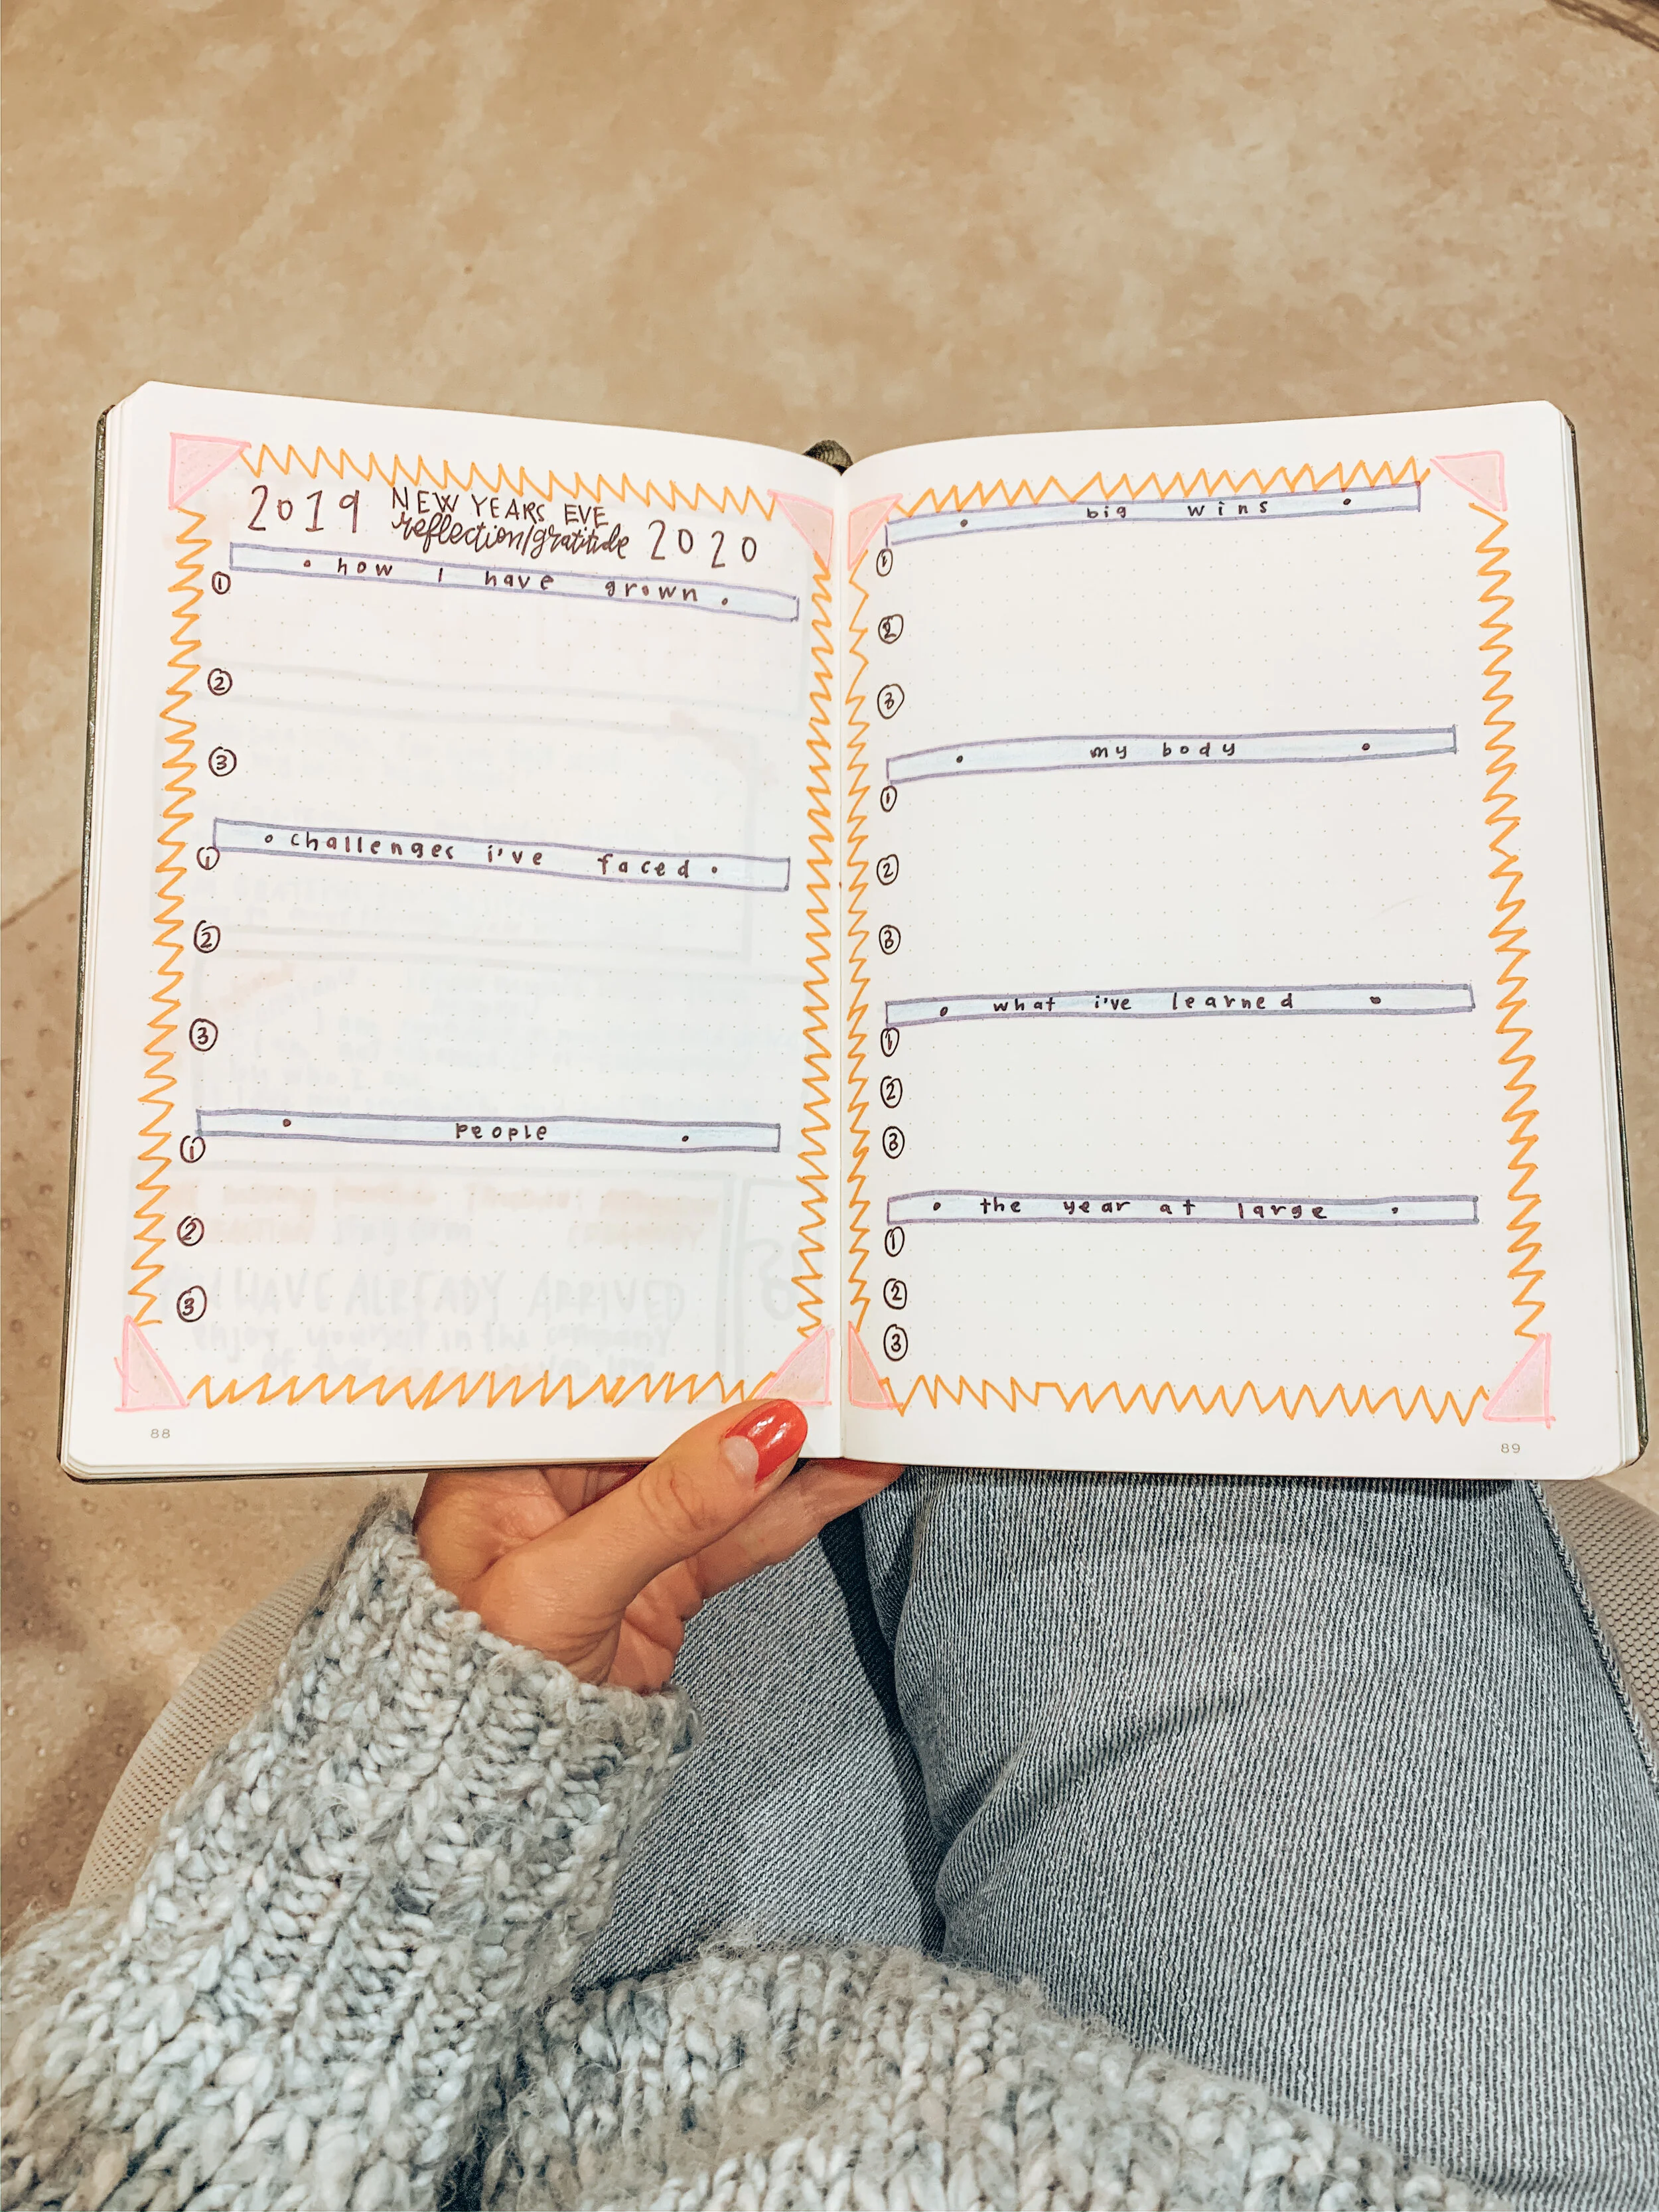 2019 NEW YEARS EVE 2020
reflection/gratitude
• how I have grown •
①
②
③
• challenges i've faced •
①
②
③
• people •
①
②
③
88
• big wins •
①
②
③
• my body •
①
②
③
• what i've learned •
①
②
③
• the year at large •
①
②
③
89
HAVE ALREADY ARRIVED
enjoy yourself in the company
of